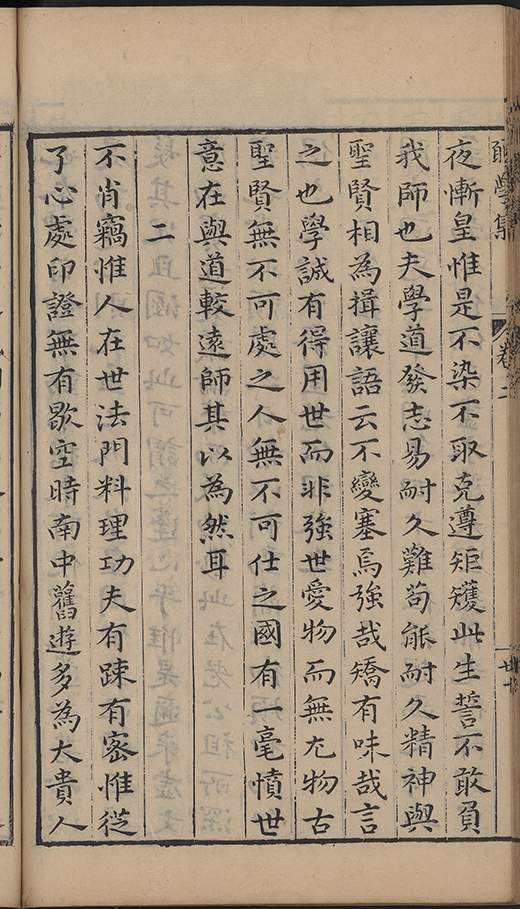 學集
卷二
夜慚皇惟是不染不取克遵矩矱此生誓不敢負
我師也夫學道發志易耐久難茍能耐久精神與
聖賢相為揖讓語云不變塞焉強哉矯有味哉言
之也學誠有得用世而非強世愛物而無尤物古
聖賢無不可處之人無不可仕之國有一毫憤世
意在與道較遠師其以為然耳
二
不肖竊惟人在世法門料理功夫有踈有密惟從
了心處印證無有歇空時南中舊遊多為大貴人